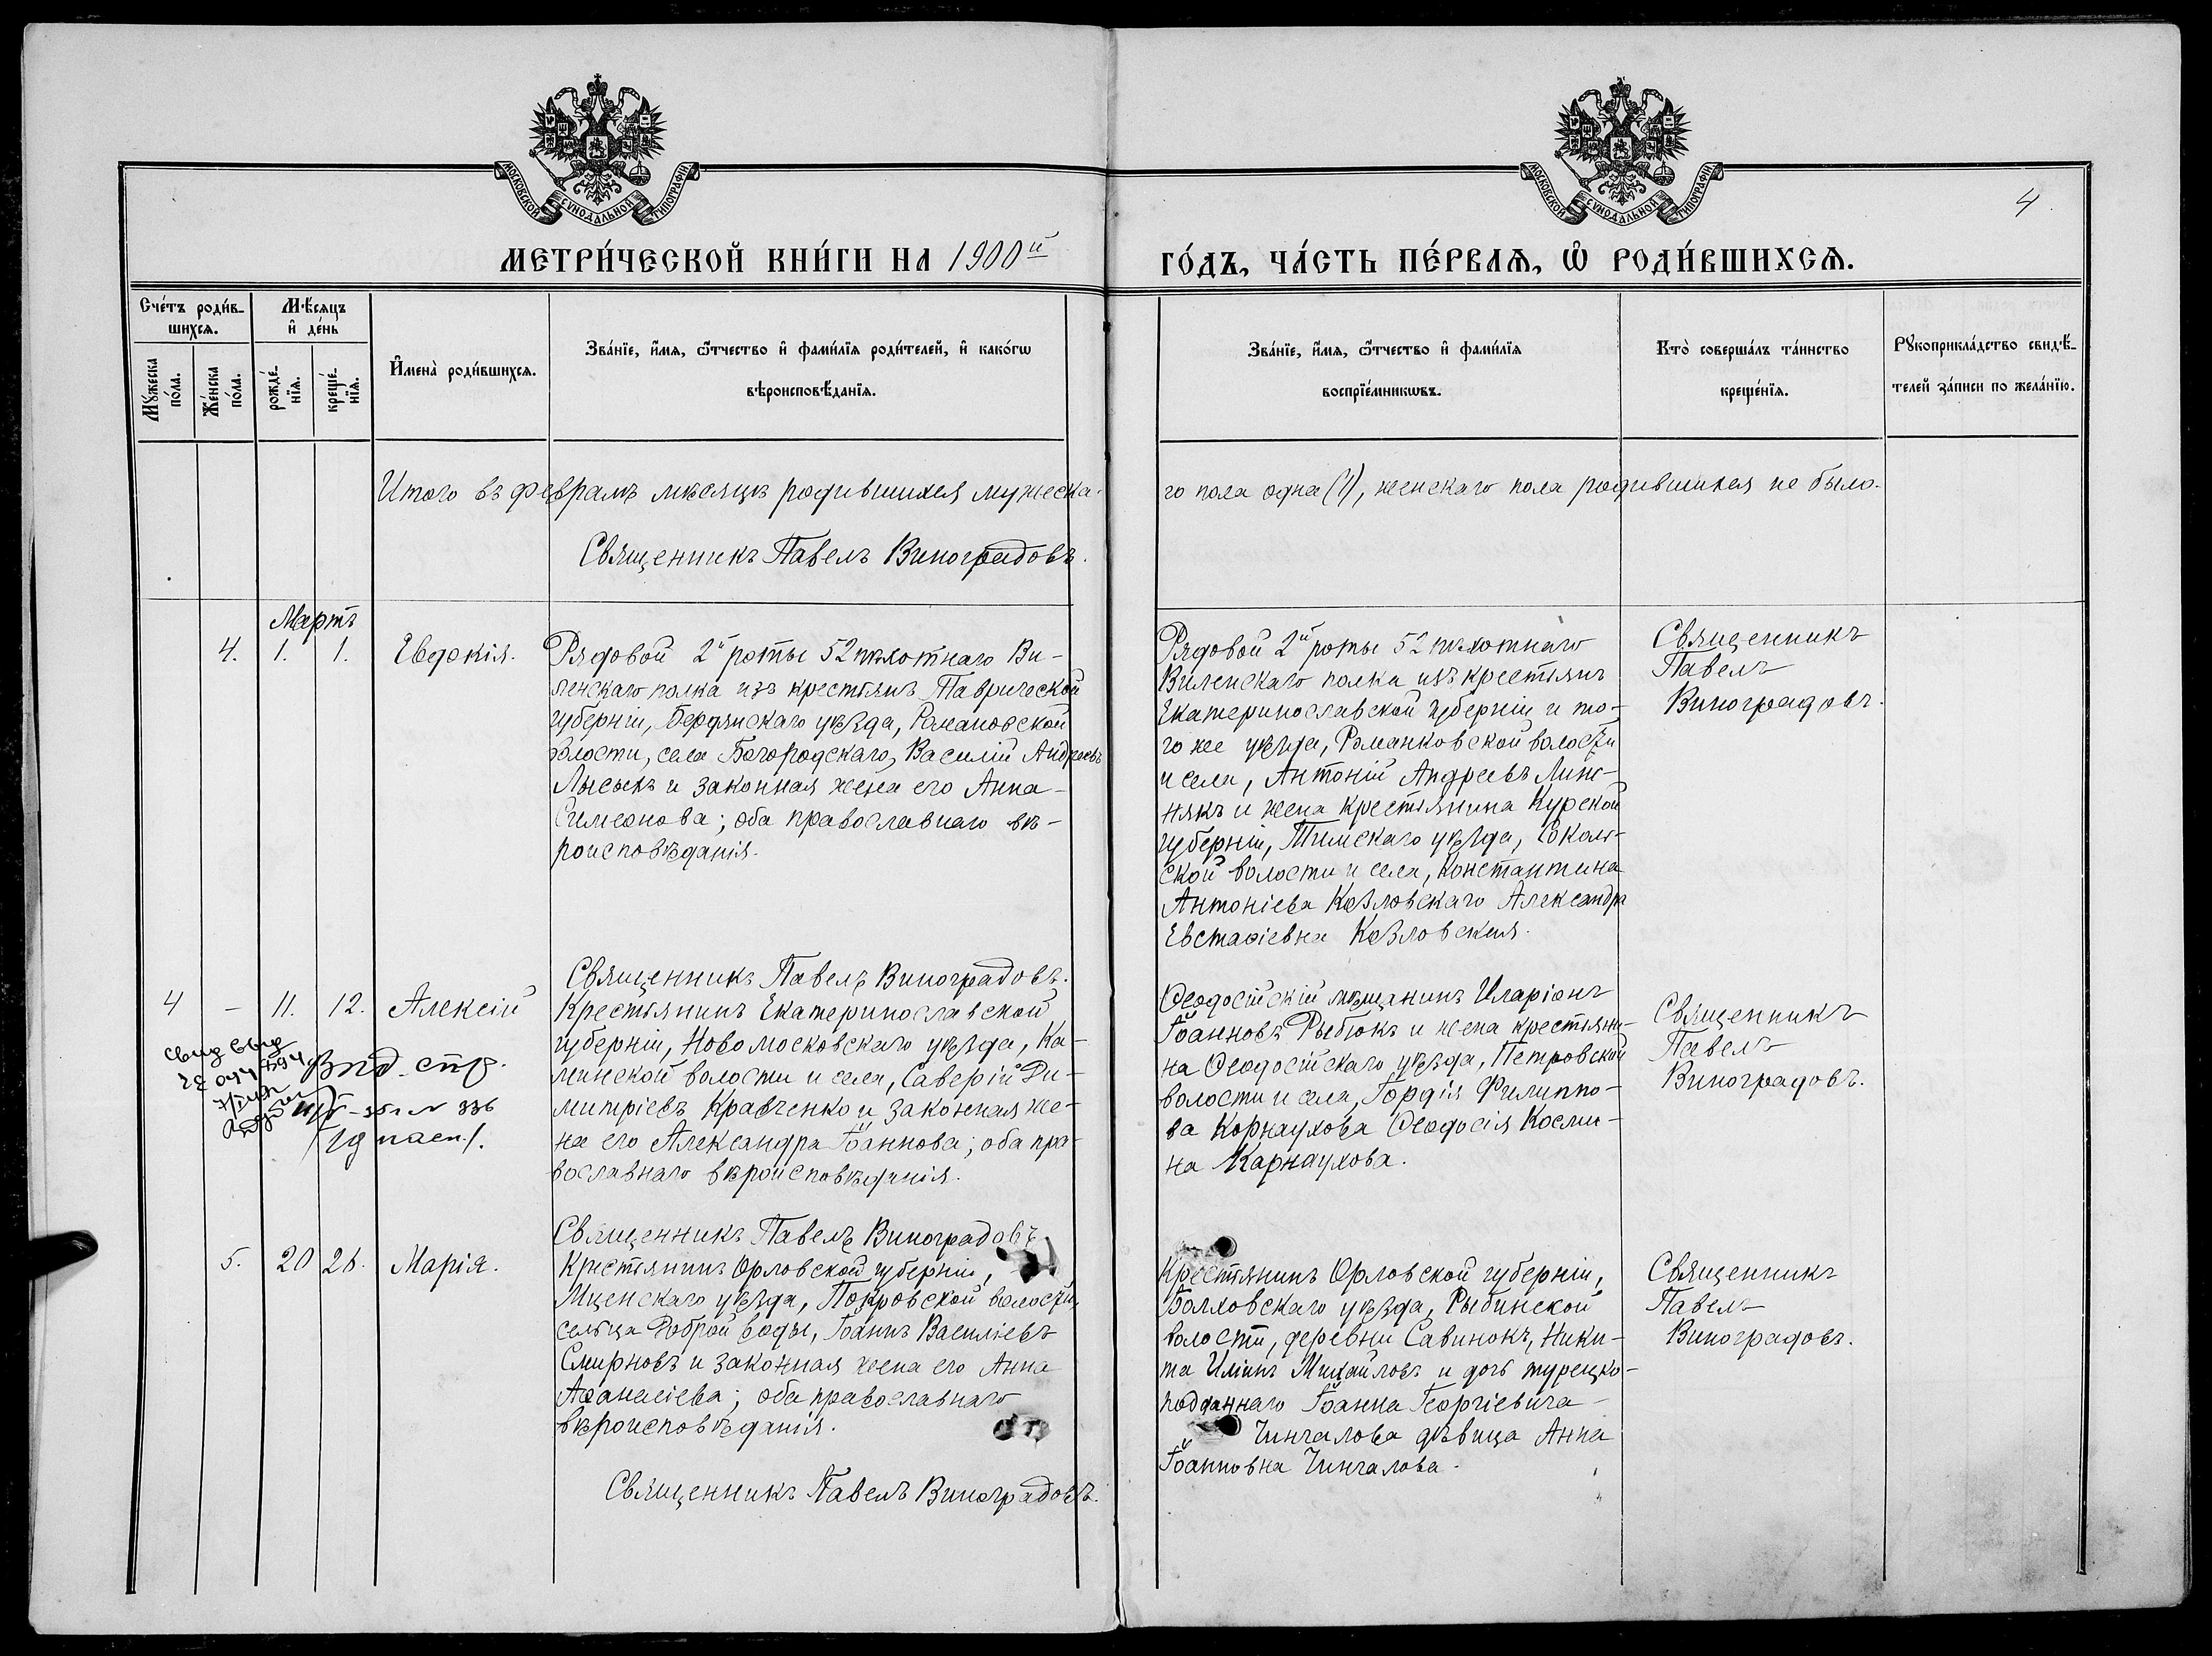 МОСКОВСКОЙ СѴНОДАЛЬНОЙ ТИПОГРАФІИ
МОСКОВСКОЙ СѴНОДАЛЬНОЙ ТИПОГРАФІИ
4
МЕТРИ́ЧЕСКОЙ КНИ́ГИ НА 1900й ГО́ДЪ, ЧА́СТЬ ПЕ́РВАѦ, Ѡ҆ РОДИ́ВШИХСѦ.
Сче́тъ роди́в-
шихсѧ.
Мꙋ́жеска
по́ла.
Же́нска
по́ла.
Мѣ́сѧцъ
и҆ де́нь
рожде́-
нїѧ.
креще́-
нїѧ.
И҆мена̀ роди́вшихсѧ.
Зва́нїе, и҆́мѧ, ѻ҆́тчество и҆ фами́лїѧ роди́телей, и҆ како́гѡ
вѣроисповѣ́данїѧ.
Зва́нїе, и҆́мѧ, ѻ҆́тчество и҆ фами́лїѧ
воспрїе́мникѡвъ.
Кто̀ соверша́лъ та́инство
креще́нїѧ.
Рꙋкоприкла́дство свидѣ́-
телей за́писи по жела́нїю.
Итого въ февралѣ мѣсяцѣ родившихся мужеска-
го пола одна (1), женскаго пола родившихся не было.
Священникъ Павелъ Виноградовъ.
Мартъ
4. 1. 1. Евдокія.
Рядовой 2й роты 52 пѣхотнаго Ви-
ленскаго полка изъ крестьянъ Таврической
губерніи, Бердянскаго уѣзда, Романовской
волости, села Богородскаго, Василій Андреевъ
Лысакъ и законная жена его Анна
Симеонова; оба православнаго вѣ-
роисповѣданія.
Рядовой 2й роты 52 пѣхотнаго
Виленскаго полка изъ крестьянъ
Екатеринославской губерніи и то-
го же уѣзда, Романковской волости
и села, Антоній Андреевъ Линс-
някъ и жена крестьянина Курской
губерніи, Тимскаго уѣзда, Соколь-
ской волости и села, Константина
Антоніева Козловскаго Александра
Евстаѳіевна Козловская.
Священникъ
Павелъ
Виноградовъ.
Священникъ Павелъ Виноградовъ.
4 – 11. 12. Алексій
Крестьянинъ Екатеринославской
губерніи, Новомосковскаго уѣзда, Ка-
минской волости и села, Саверій Ди-
митріевъ Кравченко и законная же-
на его Александра Іоаннова; оба пра-
вославнаго вѣроисповѣданія.
Ѳеодосійскій мѣщанинъ Иларіонъ
Іоанновъ Рыбюкъ и жена крестьяни-
на Ѳеодосійскаго уѣзда, Петровской
волости и села, Гордія Филиппо-
ва Корнаухова Ѳеодосія Косми-
на Карнаухова.
Священникъ
Павелъ
Виноградовъ.
Священникъ Павелъ Виноградовъ
5. 20 26. Марія.
Крестьянинъ Орловской губерніи,
Мценскаго уѣзда, Покровской волости,
сельца Доброй воды, Іоаннъ Василіевъ
Смирновъ и законная жена его Анна
Аѳанасіева; оба православнаго
вѣроисповѣданія.
Крестьянинъ Орловской губерніи,
Болховскаго уѣзда, Рыбинской
волости, деревни Савинокъ, Ники-
та Иліинъ Михайловъ и дочь турецко-
подданнаго Іоанна Георгіевича
Чинчалова дѣвица Анна
Іоанновна Чинчалова.
Священникъ
Павелъ
Виноградовъ.
Священникъ Павелъ Виноградовъ.